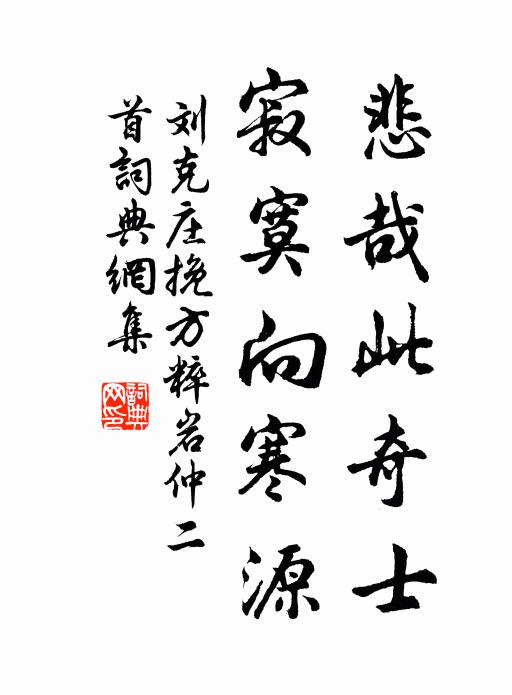 悲哉此奇士
寂寞向寒源
刘克庄挽方粹岩仲二
首詞典網集
詞典網印